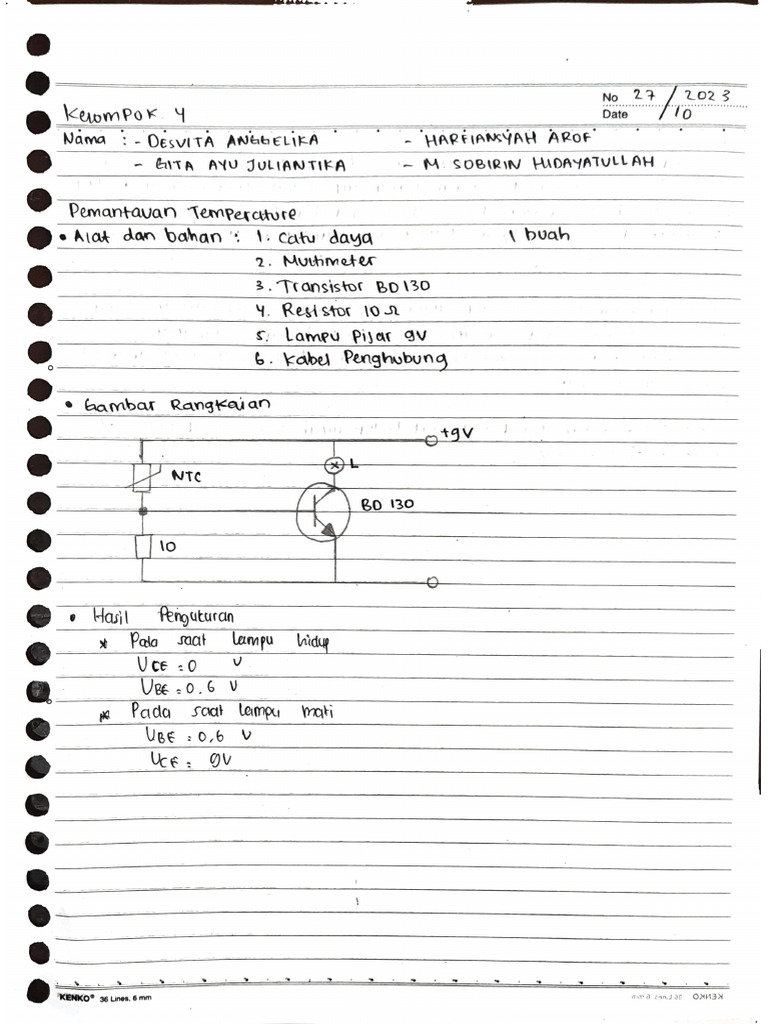 No 27 / 2023
Date /10
Kelompok 4
Nama : - DESVITA ANGGELIKA - HARFIANSYAH AROF
- GITA AYU JULIANTIKA - M. SOBIRIN HIDAYATULLAH
Pemantauan Temperature
• Alat dan bahan : 1. Catu daya 1 buah
2. Multimeter
3. Transistor BD 130
4. Resistor 10 Ω
5. Lampu Pijar 9V
6. Kabel Penghubung
• Gambar Rangkaian
+9V
L
NTC
BD 130
10
• Hasil Pengukuran
* Pada saat lampu hidup
UCE = 0 V
UBE = 0.6 V
* Pada saat lampu mati
UBE : 0,6 V
UCE = 9V
KENKO® 36 Lines, 6 mm